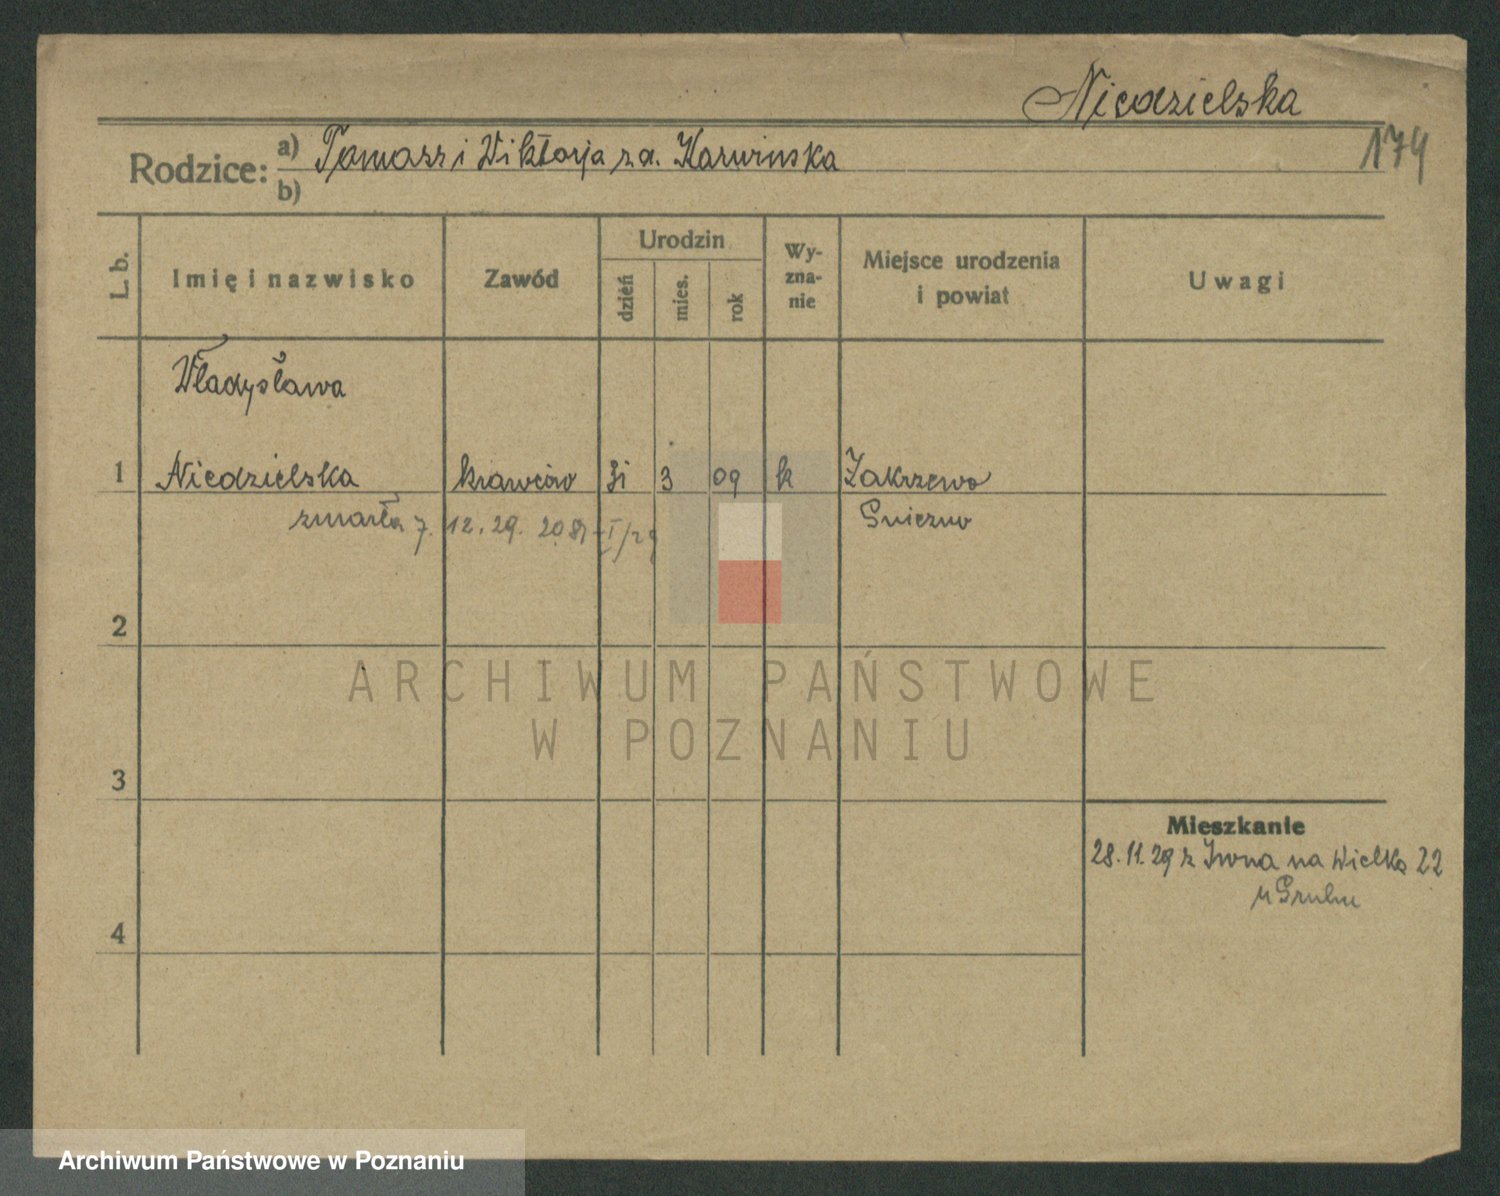 Niedzielska
174
Rodzice: a) Tomasz i Wiktorja z d. Kaz
b)
L. b.
Imię i nazwisko
Zawód
Urodzin
dzień
mies.
rok
Wy-
zna-
nie
Miejsce urodzenia
i powiat
Uwagi
Władysława
1 Niedzielska 31 3 09 k Zakrzewo
zmarła 7.12.29. I/29 Gniezno
2
3
4
Mieszkanie
28.11.29 z na Wielka 22
ARCHIWUM PAŃSTWOWE
W POZNANIU
Archiwum Państwowe w Poznaniu